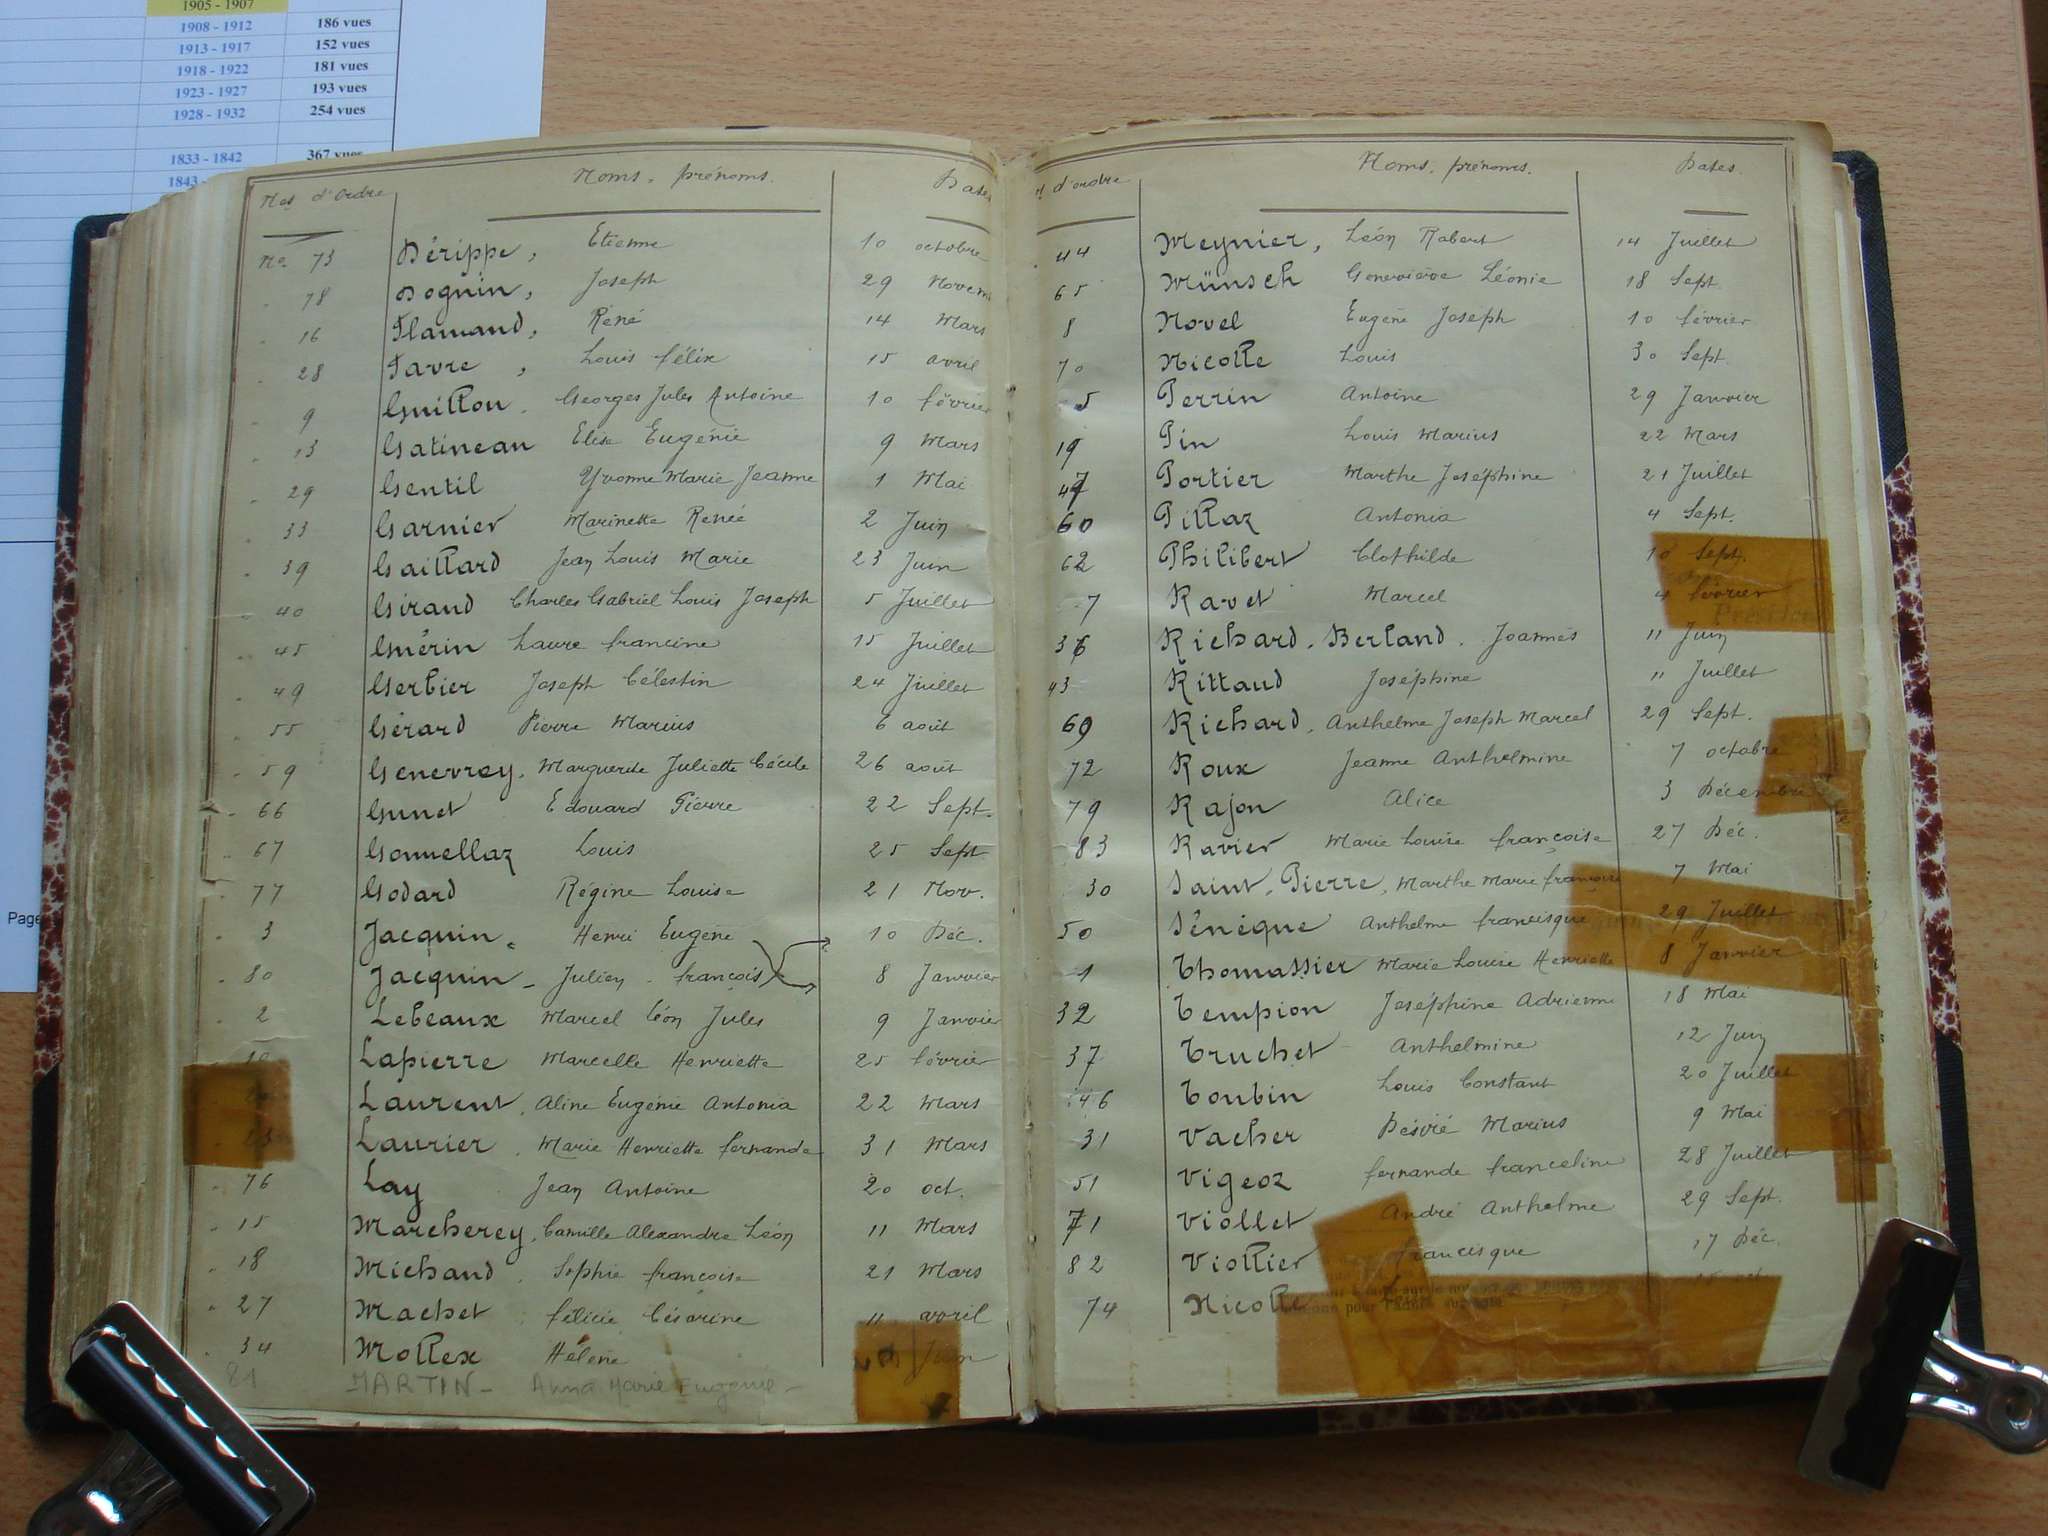 1905 - 1907
1908 - 1912 186 vues
1913 - 1917 152 vues
1918 - 1922 181 vues
1923 - 1927 193 vues
1928 - 1932 254 vues
1833 - 1842 367 vues
1843 -
Page
Nos d'ordre Noms, prénoms. Dates
No 73 Dérippe, Etienne 10 octobre
78 Dognin, Joseph 29 Novem
16 Flamand, René 14 Mars
28 Favre, Louis félix 15 avril
9 Guillon. Georges Jules Antoine 10 février
13 Gatineau Elise Eugénie 9 Mars
29 Gentil Yvonne Marie Jeanne 1 Mai
33 Garnier Marinette Renée 2 Juin
39 Gaillard Jean Louis Marie 23 Juin
40 Giraud Charles Gabriel Louis Joseph 5 Juillet
45 Guérin Laure francine 15 Juillet
49 Gerbier Joseph Célestin 24 Juillet
55 Gérard Pierre Marius 6 août
59 Genevrey. Marguerite Juliette Cécile 26 août
66 Gunet Edouard Pierre 22 Sept.
67 Gonnellaz Louis 25 Sept
77 Godard Régine Louise 21 Nov.
3 Jacquin. Henri Eugène 10 Déc.
80 Jacquin - Julien - françois 8 Janvier
2 Lebeaux Marcel Léon Jules 9 Janvier
Lapierre Marcelle Henriette 25 février
Laurent. Aline Eugénie Antonia 22 Mars
23 Laurier. Marie Henriette fernande 31 Mars
76 Lay Jean Antoine 20 oct.
15 Marcherey. Camille Alexandre Léon 11 Mars
18 Michaud. Sophie françoise 21 Mars
27 Machet félicie Césarine 11 avril
34 Mollex Hélène Juin
81 MARTIN - Anna Marie Eugénie -
N. d'ordre Noms, prénoms. Dates.
44 Meynier, Léon Robert 14 Juillet
65 Münsch Geneviève Léonie 18 Sept.
8 Novel Eugène Joseph 10 février
70 Nicolle Louis 30 Sept.
5 Perrin Antoine 29 Janvier
19 Pin Louis Marius 22 Mars
47 Portier Marthe Joséphine 21 Juillet
60 Pillaz Antonia 4 Sept.
62 Philibert Clothilde 10 Sept.
7 Ravet Marcel 4 février
36 Richard. Berland. Joannès 11 Juin
43 Rittaud Joséphine 11 Juillet
69 Richard. Anthelme Joseph Marcel 29 Sept.
72 Roux Jeanne Anthelmine 7 octobre
79 Rajon Alice 3 Décembre
83 Ravier Marie Louise françoise 27 Déc.
30 Saint. Pierre. Marthe Marie françoise 7 Mai
50 Sénèque Anthelme francisque 29 Juillet
1 Thomassier Marie Louise Henriette 8 Janvier
32 Tempion Joséphine Adrienne 18 Mai
37 Truchet Anthelmine 12 Juin
46 Toubin Louis Constant 20 Juillet
31 Vacher Désiré Marius 9 Mai
51 Vigeoz fernande franceline 28 Juillet
71 Viollet André Anthelme 29 Sept.
82 Viollier francisque 17 Déc.
74 Nicolle